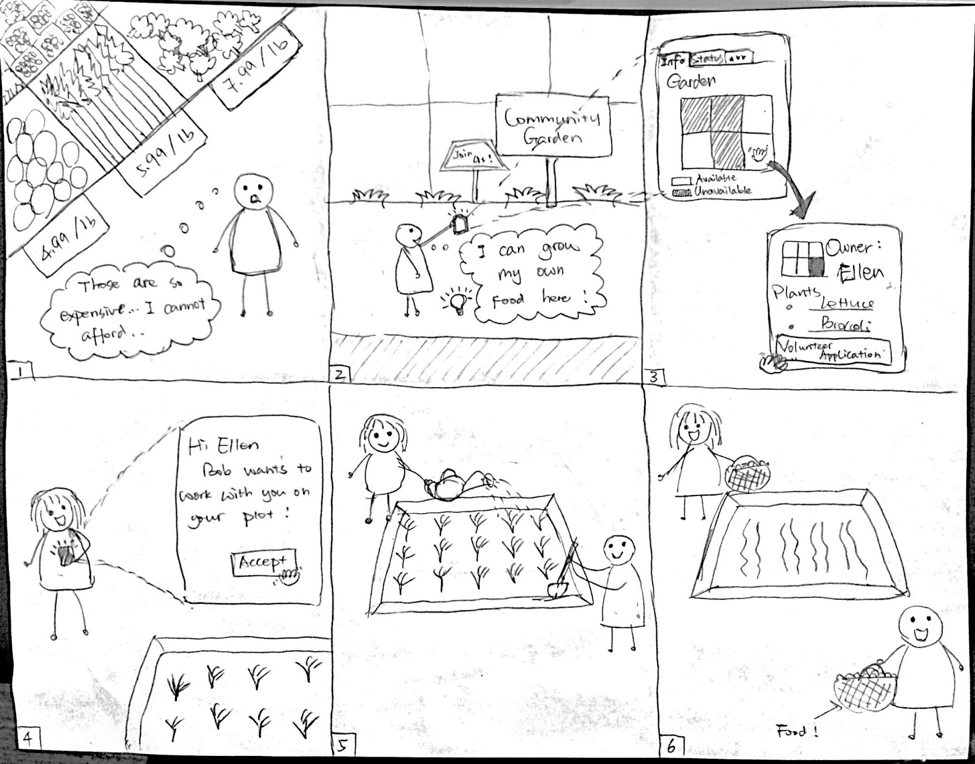 7.99/lb
5.99/lb
4.99/lb
Those are so
expensive... I cannot
afford...
1
Community
Garden
Join
us!
I can grow
my own
food here!
2
Info Status
Garden
Available
Unavailable
Owner:
Ellen
Plants
Lettuce
Brocoli
Volunteer
Application
3
Hi Ellen
Bob wants to
work with you on
your plot!
Accept
4
5
Food!
6